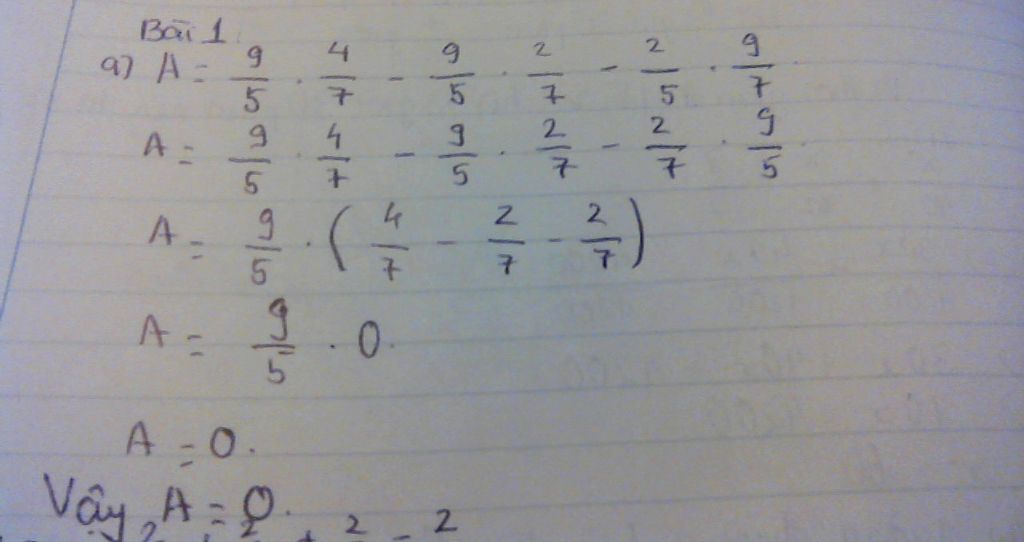 Bài 1:
a) A = 9/5 . 4/7 - 9/5 . 2/7 - 2/5 . 9/7
A = 9/5 . 4/7 - 9/5 . 2/7 - 2/7 . 9/5
A = 9/5 . (4/7 - 2/7 - 2/7)
A = 9/5 . 0.
A = 0.
Vậy A = 0.